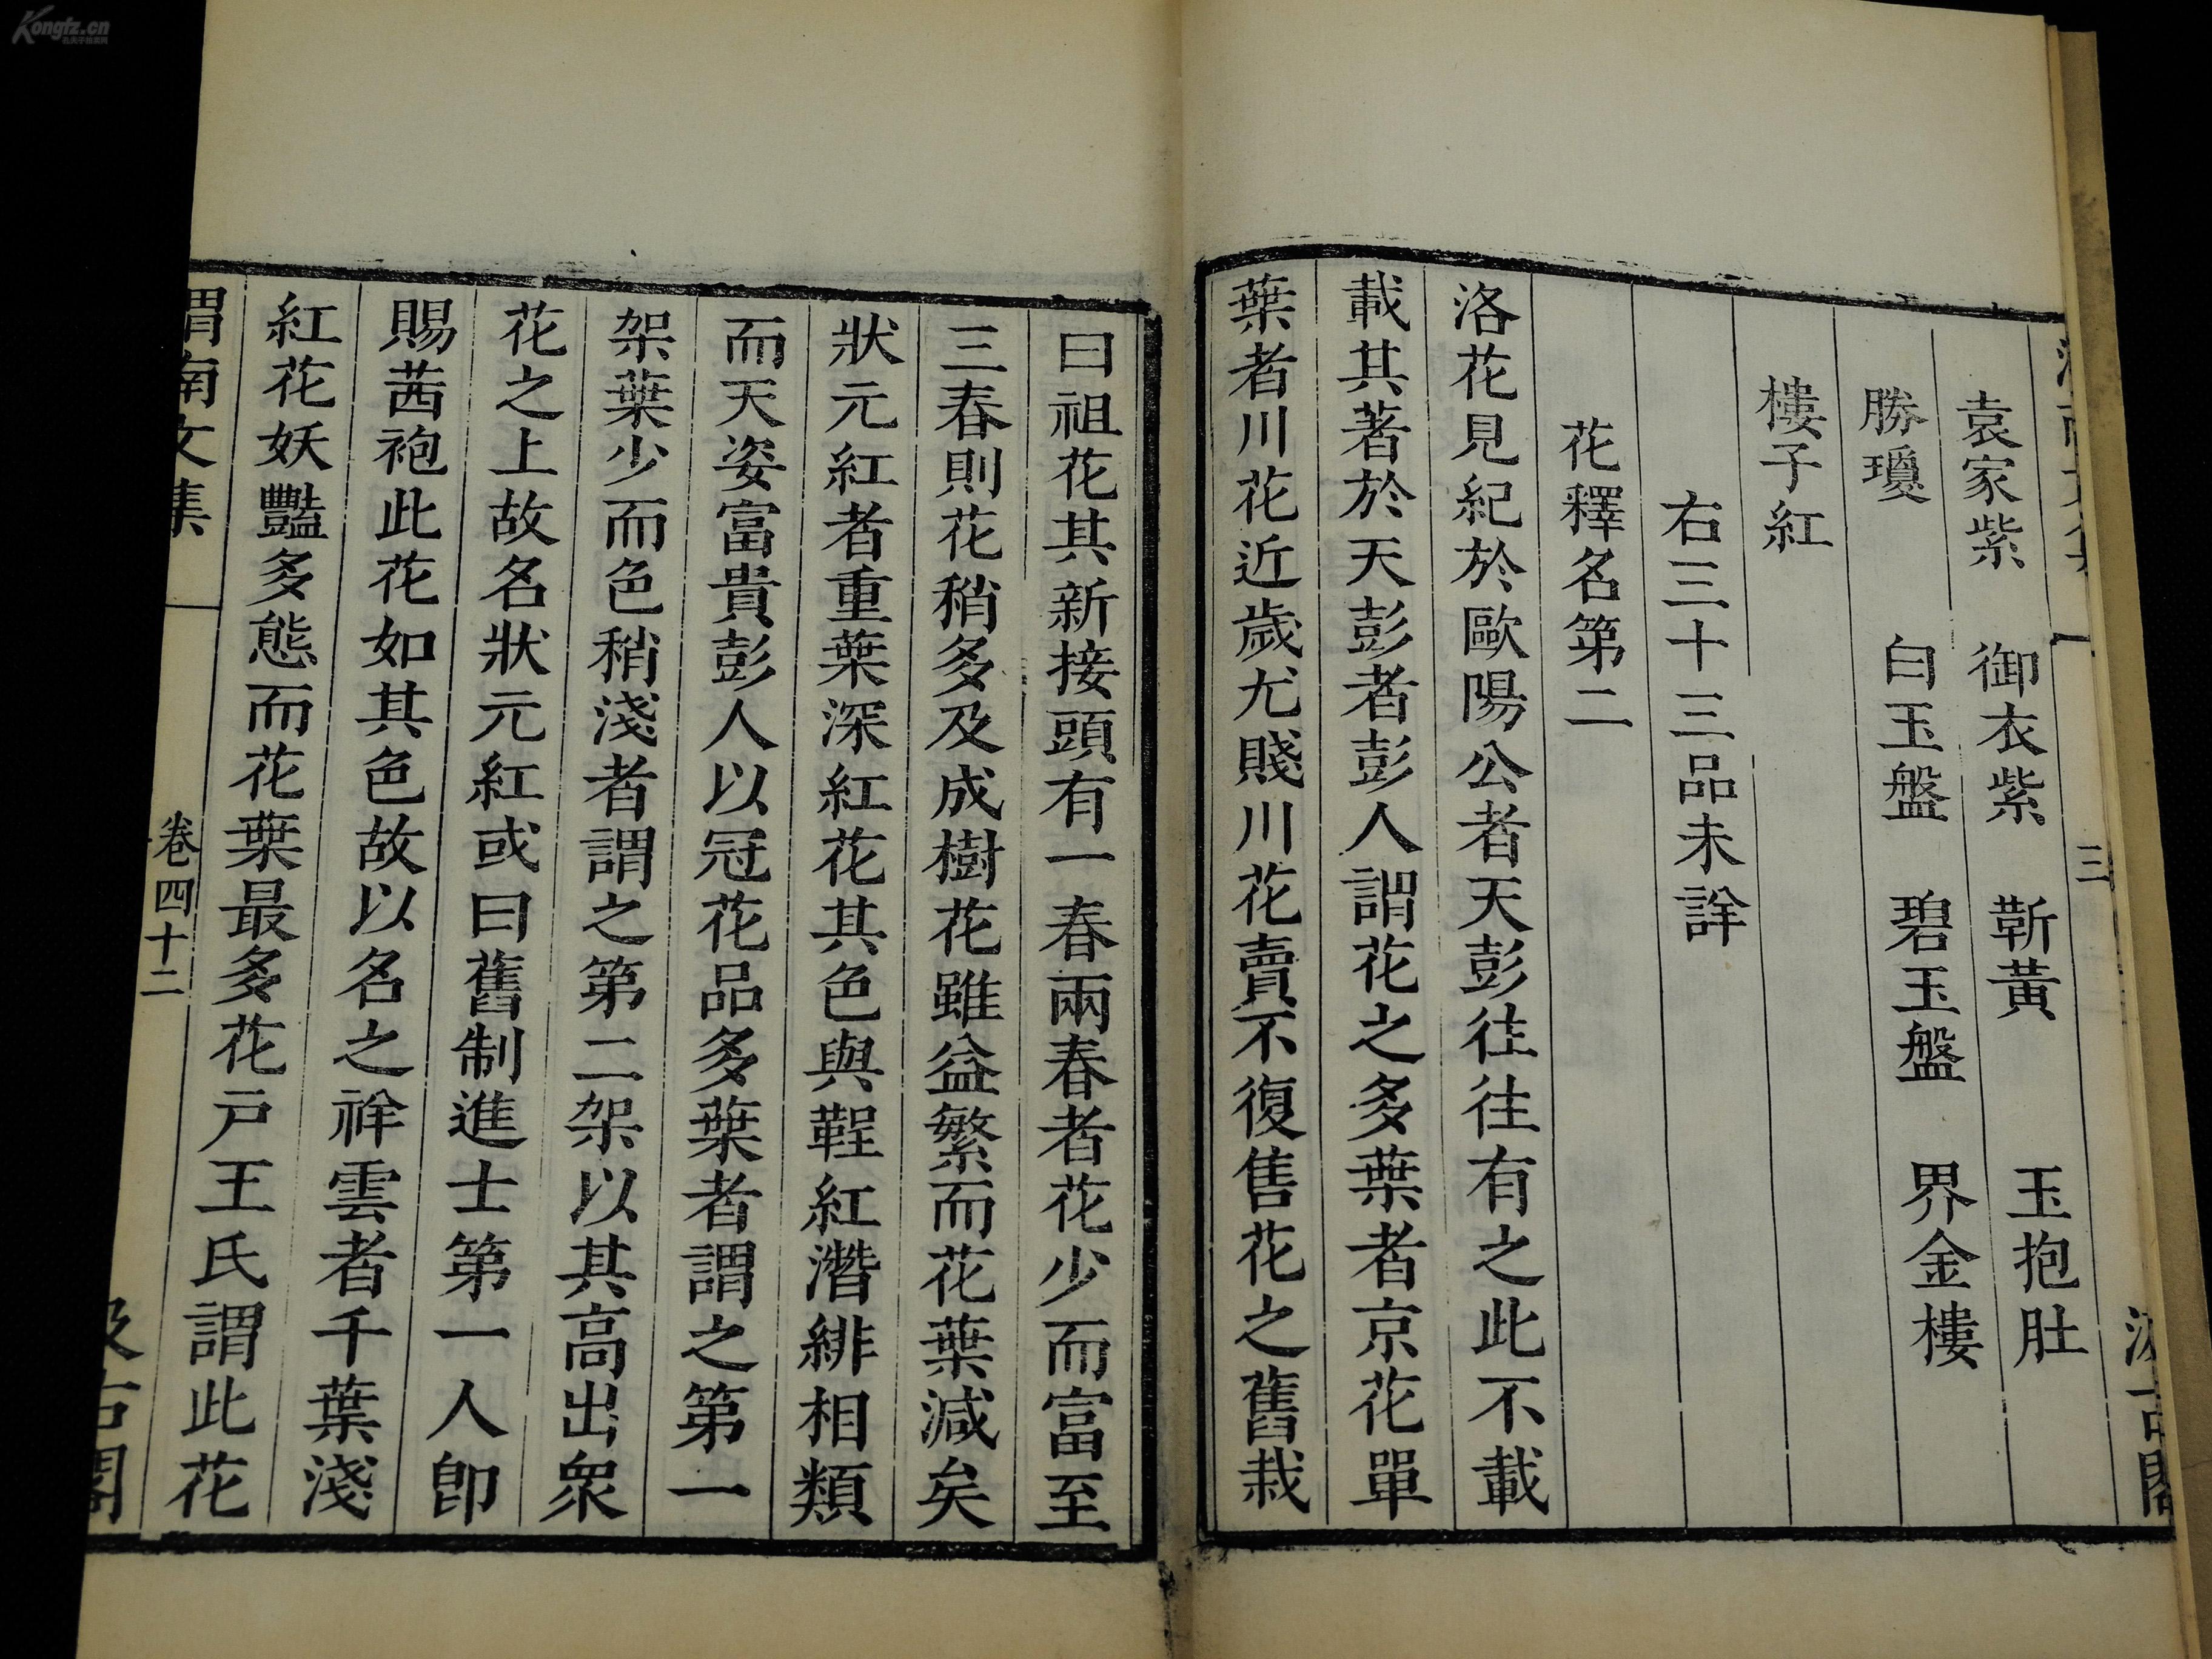 Kongfz.cn
三
袁家紫 御衣紫 靳黃 玉抱肚
勝瓊 白玉盤 碧玉盤 界金樓
樓子紅
右三十三品未詳
花釋名第二
洛花見紀於歐陽公者天彭往往有之此不載
載其著於天彭者彭人謂花之多葉者京花單
葉者川花近歲尤賤川花賣不復售花之舊栽
曰祖花其新接頭有一春兩春者花少而富至
三春則花稍多及成樹花雖益繁而花葉減矣
狀元紅者重葉深紅花其色與鞓紅潛緋相類
而天姿富貴彭人以冠花品多葉者謂之第一
架葉少而色稍淺者謂之第二架以其高出衆
花之上故名狀元紅或曰舊制進士第一人即
賜茜袍此花如其色故以名之祥雲者千葉淺
紅花妖豔多態而花葉最多花戸王氏謂此花
渭南文集 卷四十二 汲古閣